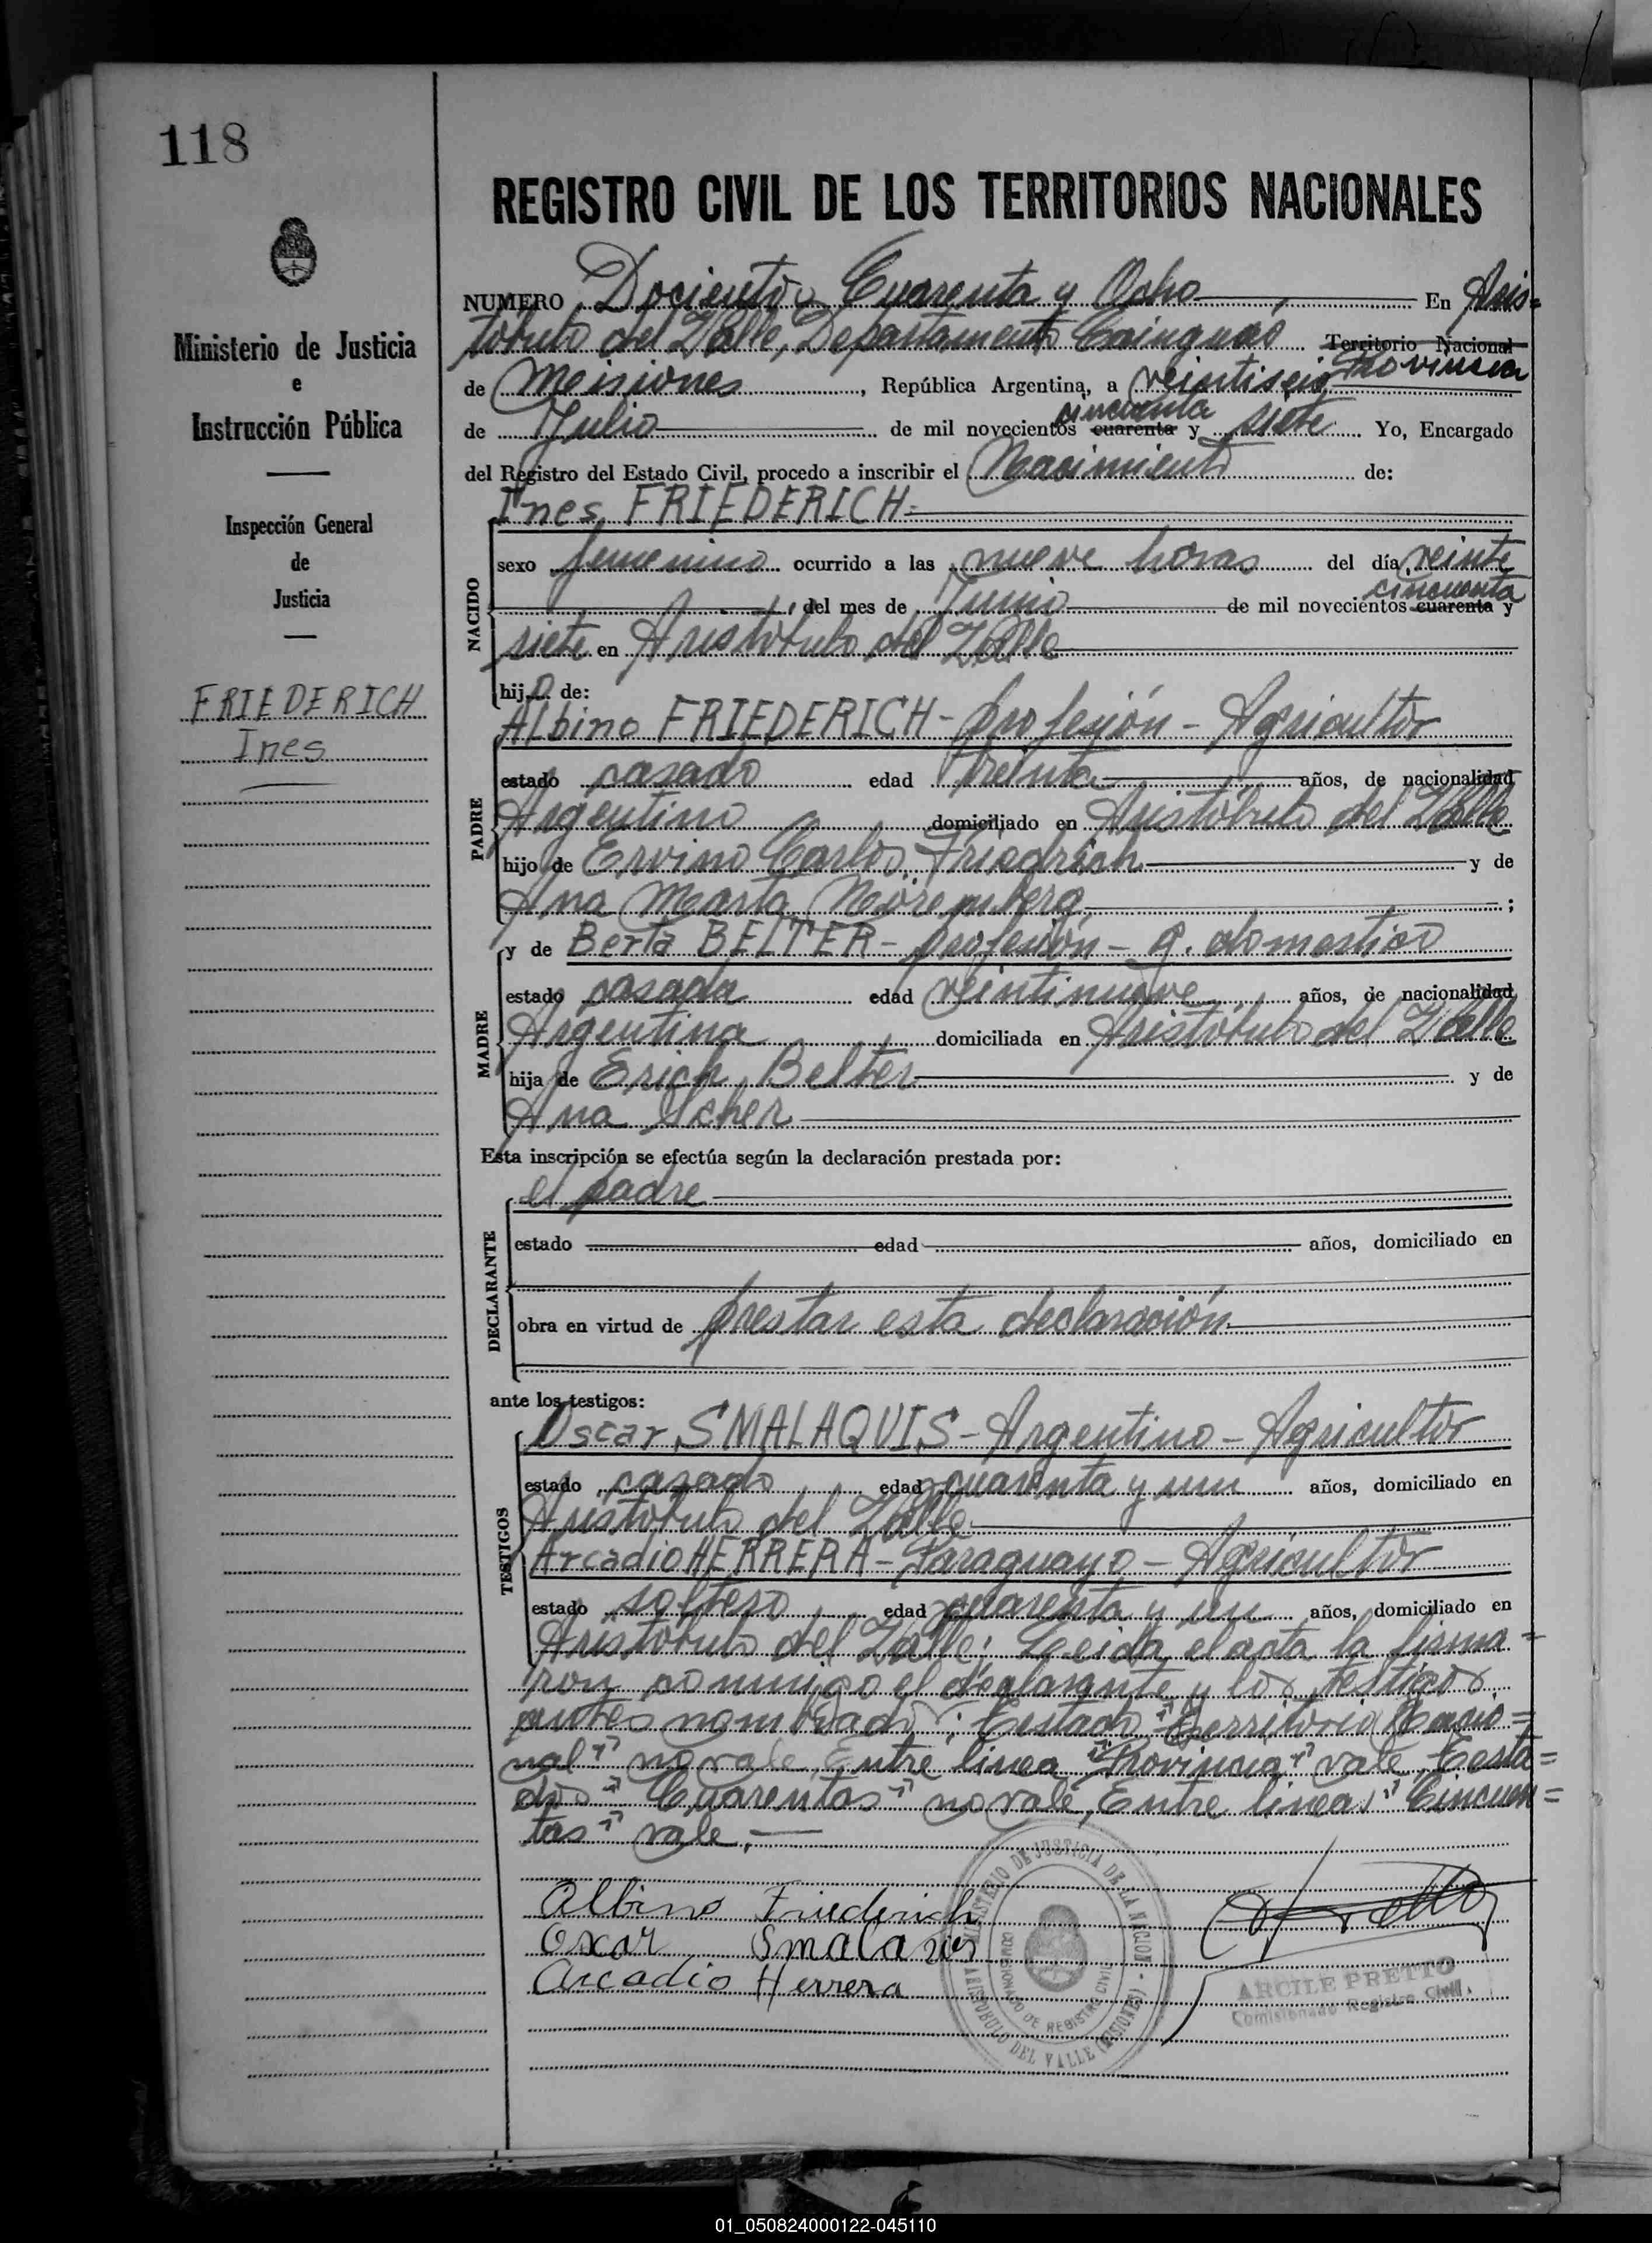 118
REGISTRO CIVIL DE LOS TERRITORIOS NACIONALES
Ministerio de Justicia
e
Instrucción Pública
Inspección General
de
Justicia
FRIEDERICH
Ines
NUMERO Dociento s Cuarenta y Ocho En Aris=
tobulo del Valle, Departamento Cainguas Territorio Nacional
Provincia
de Meisiones, República Argentina, a veintiseis
cincuenta
de Julio de mil novecientos cuarenta y siete Yo, Encargado
del Registro del Estado Civil, procedo a inscribir el Nacimiento de:
Ines FRIEDERICH=
NACIDO
sexo femenino ocurrido a las nueve horas del día veinte
cincuenta
, del mes de Junio de mil novecientos cuarenta y
siete en Aristóbulo del Valle
hija de:
Albino FRIEDERICH - profesión - Agricultor
PADRE
estado casado edad treinta años, de nacionalidad
Argentino domiciliado en Aristóbulo del Valle
hijo de Ervino Carlos Friedrich y de
Ana Marta ;
y de Berta BELTER - profesión - q. domestico
MADRE
estado casada edad veintinueve años, de nacionalidad
Argentina domiciliada en Aristóbulo del Valle
hija de Erich Belter y de
Ana Scher
Esta inscripción se efectúa según la declaración prestada por:
el padre
DECLARANTE
estado edad años, domiciliado en
obra en virtud de prestar esta declaración
ante los testigos:
Oscar SMALAQVIS - Argentino - Agricultor
TESTIGOS
estado casado edad cuarenta y un años, domiciliado en
Aristobulo del Valle
Arcadio HERRERA - Paraguayo - Agricultor
estado soltero edad cuarenta y un años, domiciliado en
Aristóbulo del Valle; Leida el acta la firma=
ron conmigo el declarante y los testigos
antes nombrados: Testado "Territorio Nacio=
nal" no vale, Entre linea "Provincia" vale, Testa=
dos "Cuarentas" no vale, Entre lineas "Cincuen=
tas" vale.—
Albino Friederich
Oscar
Arcadio Herrera
MINISTERIO DE JUSTICIA DE LA NACION
COMISIONADO DE REGISTRO CIVIL
ARISTOBULO DEL VALLE (MISIONES)
ARCILE PRETTO
Comisionado Registro Civil
01_050824000122-045110